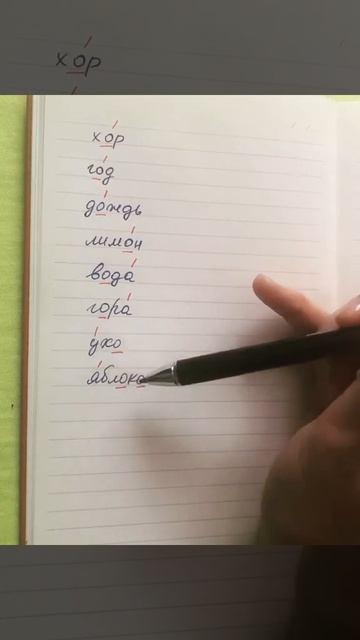 хор
хор
год
дождь
лимон
вода
гора
ухо
яблоко